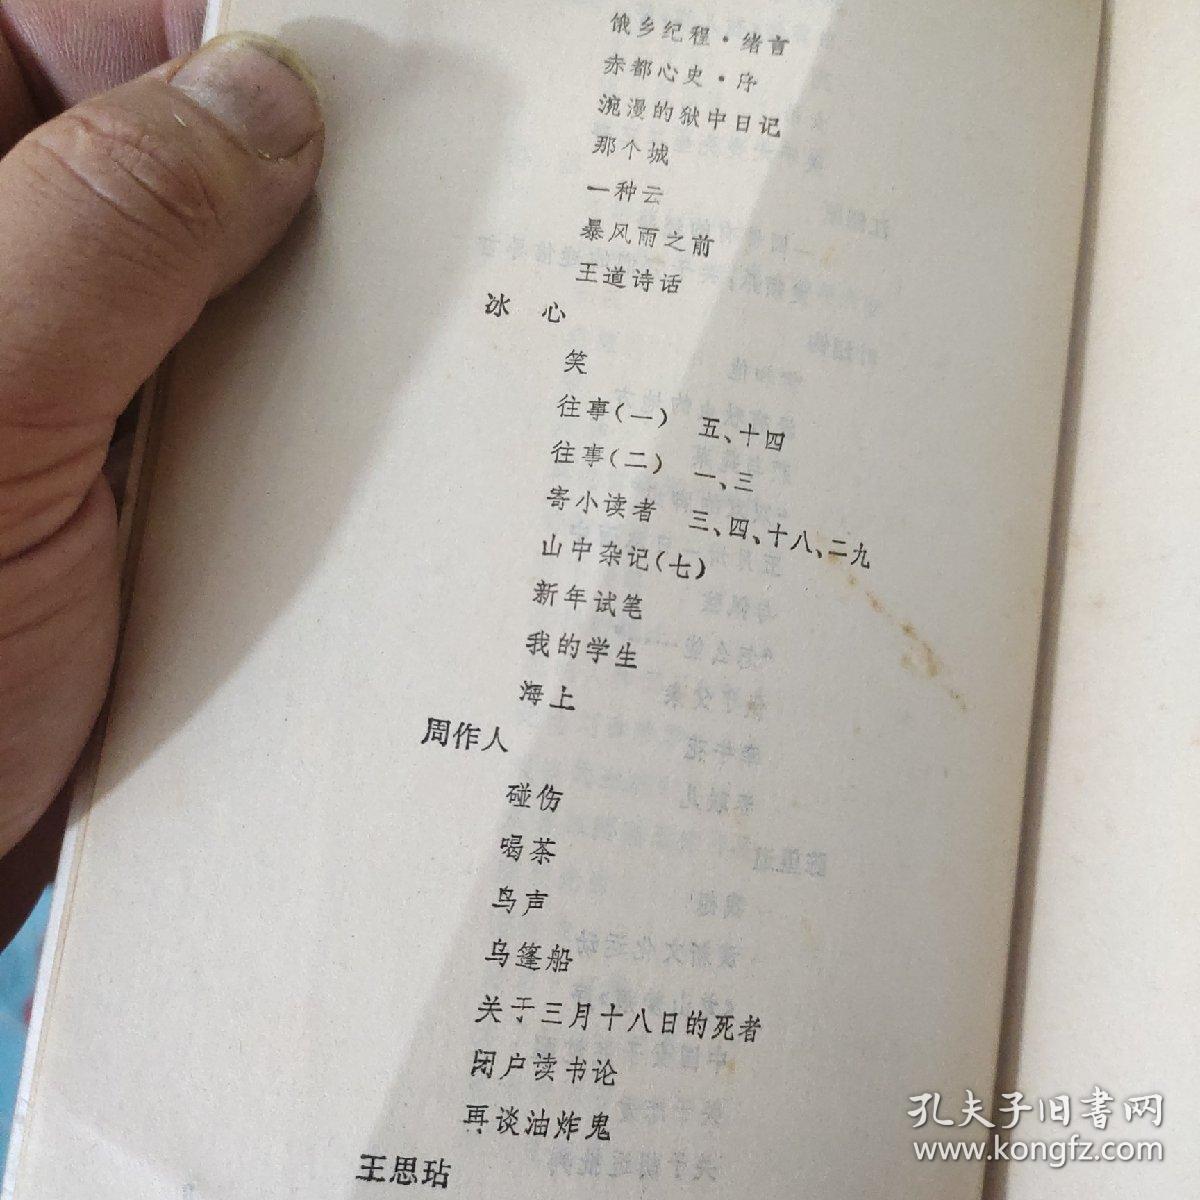 俄乡纪程·绪言
赤都心史·序
涴漫的狱中日记
那个城
一种云
暴风雨之前
王道诗话
冰 心
笑
往事(一) 五、十四
往事(二) 一、三
寄小读者 三、四、十八、二九
山中杂记(七)
新年试笔
我的学生
海上
周作人
碰伤
喝茶
鸟声
乌篷船
关于三月十八日的死者
闭户读书论
再谈油炸鬼
王思玷
孔夫子旧书网
www.kongfz.com